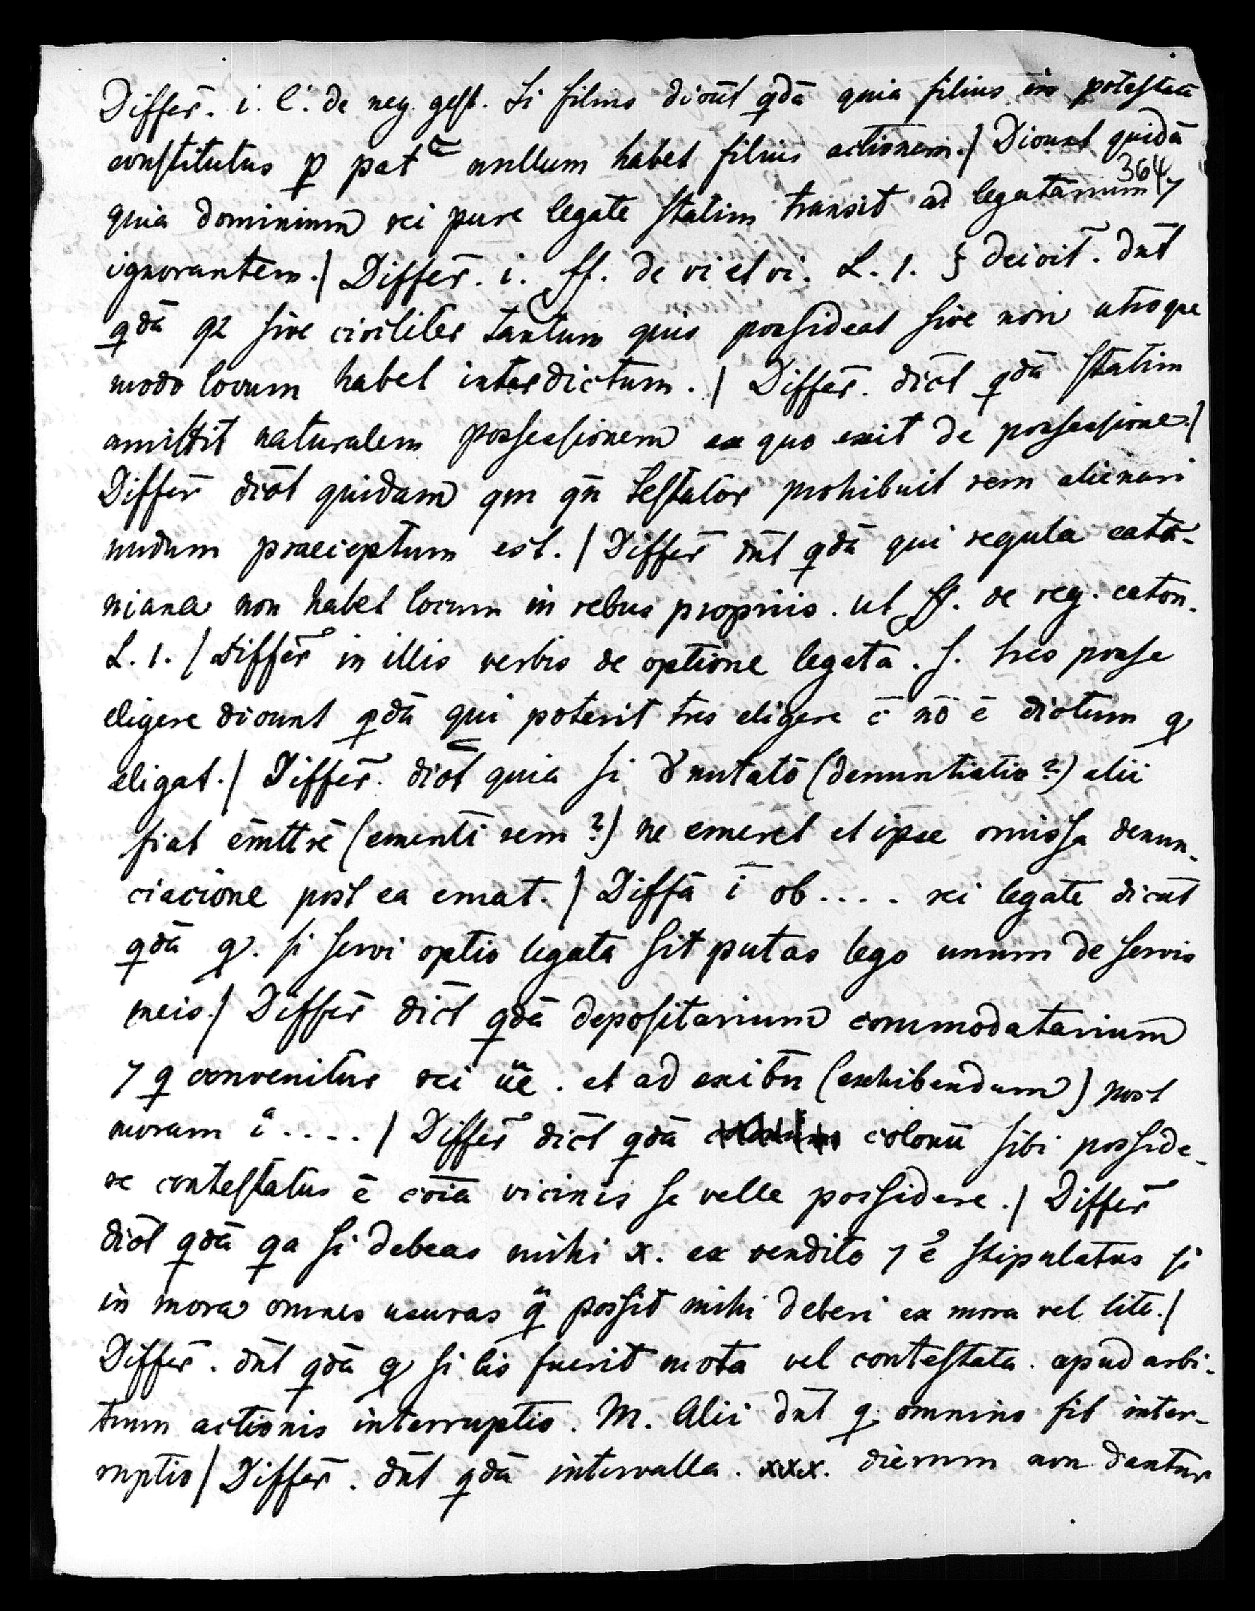 Differ̄. i. l. de neg. gest. Si filius dicūt qdā quia filius in potestate
constitutus p pat nullum habet filius actionem./ Dicunt quidā
364
quia dominium rei pure legate statim transit ad legatarium 7
ignorantem./ Differ̄. i. ff. de vi et vi. L. 1. § deicit. dūt
qdā qz sive civiliter tantum quis possideat sive non utroque
modo locum habet interdictum./ Differ̄. dicūt qdā statim
amittit naturalem possessionem ex quo exit de possessione./
Differ̄ dicūt quidam qm qn̄ testator prohibuit rem alienari
nudum praeceptum est./ Differ̄ dūt qdā qui regula cato-
niana non habet locum in rebus propriis. ut ff. de reg. caton.
L. 1./ Differ̄ in illis verbis de optione legata. s. tres posse
eligere dicunt qdā qui poterit tres eligere c̄ nō ē dictum q
eligat./ Differ̄. dicūt quia si (denuntiatio?) alii
fiat ēmttrē (ementi rem?) ne emeret et ipse omissa denun-
ciacione post ea emat./ Diffā ī ob.... rei legate dicūt
qdā q. si servi optio legata sit putas lego unum de servis
meis./ Differ̄ dicūt qdā depositarium commodatarium
7 q convenitur rei ūe. et ad exibn̄ (exhibendum) post
moram i..../ Differ̄ dicūt qdā colonū sibi posside-
re contestatus ē coīā vicinis se velle possidere./ Differ̄
dicūt qdā qa si debeas mihi x. ex vendito 7 ē stipulatus si
in mora omnes usuras q possit mihi deberi ex mora vel lite./
Differ̄. dūt qdā q si lis fuerit mota vel contestata. apud arbi-
trum actionis interruptio. M. Alii dūt q omnino fit inter-
ruptio/ Differ̄. dūt qdā intervalla. xxx. dierum non dantur